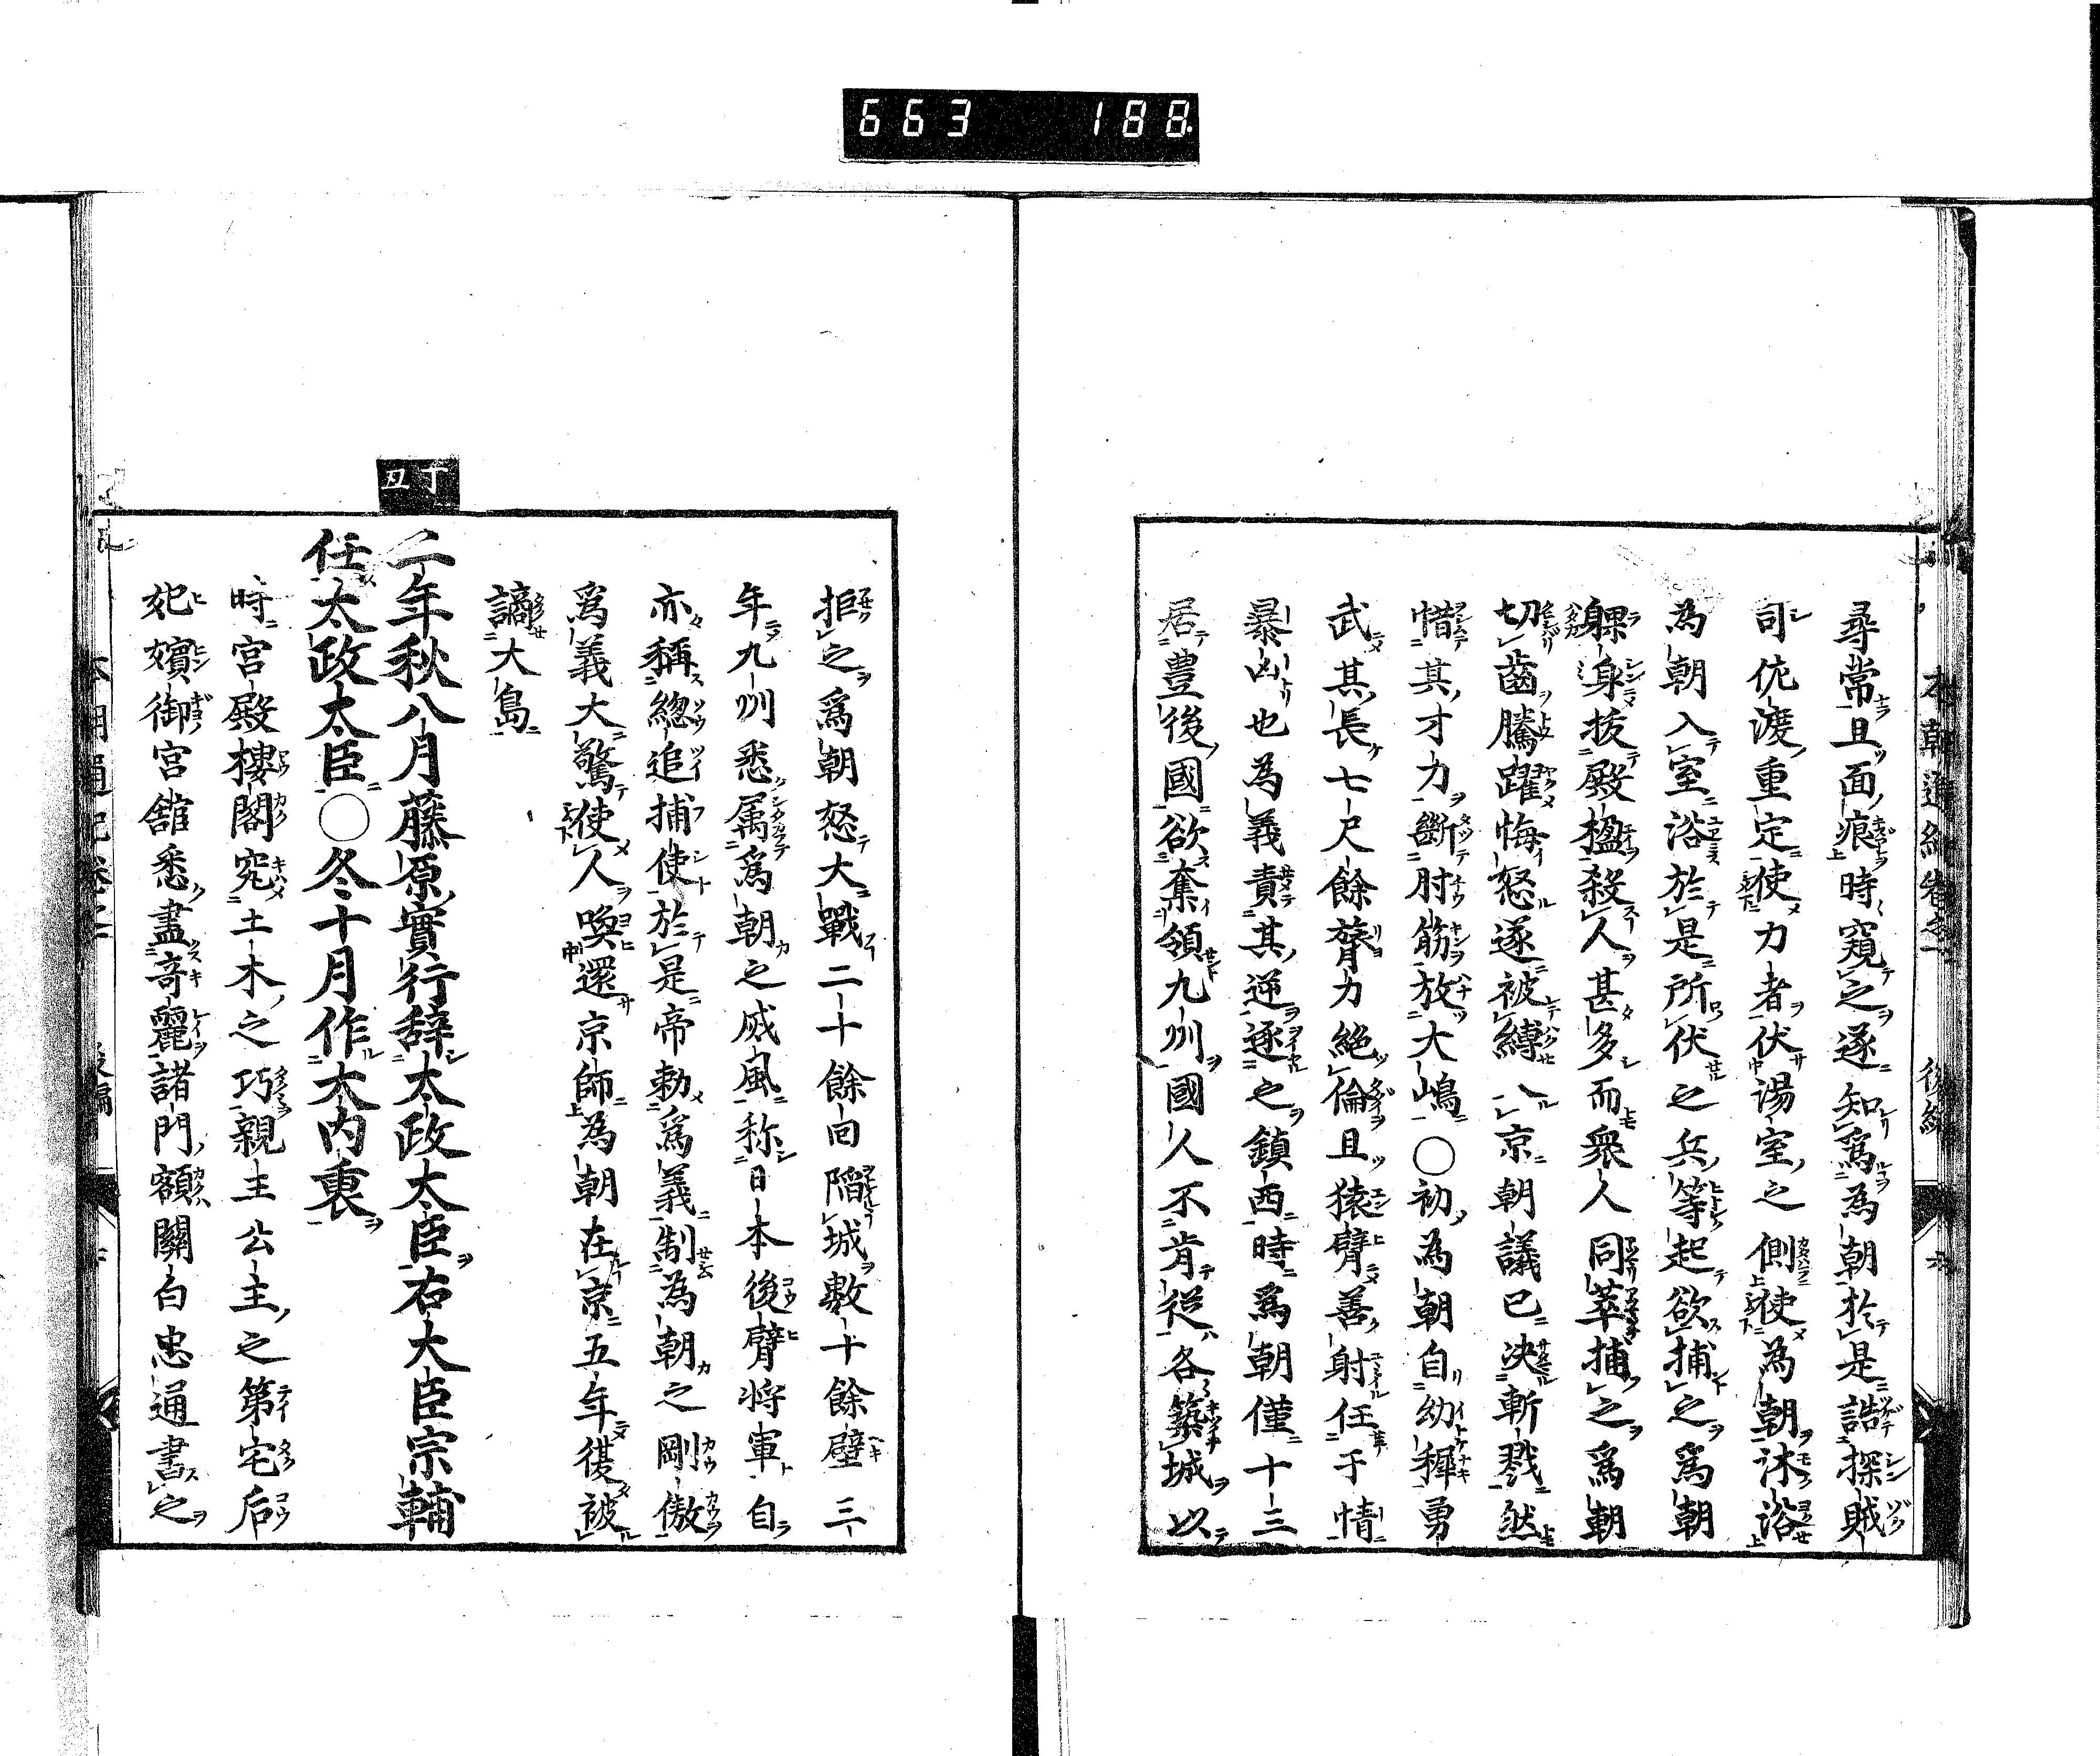 663 188
本朝通紀卷之 後編
尋常且面痕時窺之遂知爲為朝於是誥探賊
司佐渡重定使力者伏湯室之側使為朝沐浴
為朝入室浴於是所伏之兵等起欲捕之爲朝
躶身拔殿楹殺人甚多而衆人同萃捕之爲朝
切齒騰躍悔怒遂被縛入京朝議已決斬戮然
惜其才力斷肘筋放大嶋〇初為朝自幼穉勇
武其長七尺餘膂力絶倫且猿臂善射任于情
暴凶也為義責其逆逐之鎮西時爲朝僅十三
居豊後國欲奪領九州國人不肯從各築城以
拒之爲朝怒大戰二十餘囘陷城數十餘壁三
年九州悉属爲朝之威風称日本後臂将軍自
亦稱總追捕使於是帝勅爲義制為朝之剛傲
爲義大驚使人喚還京師為朝在京五年復被
謫大島
丁丑
二年秋八月藤原實行辞太政太臣右大臣宗輔
任太政太臣〇冬十月作大内裏
時宮殿樓閣究土木之巧親王公主之第宅后
妃嬪御宮舘悉盡奇麗諸門額關白忠通書之